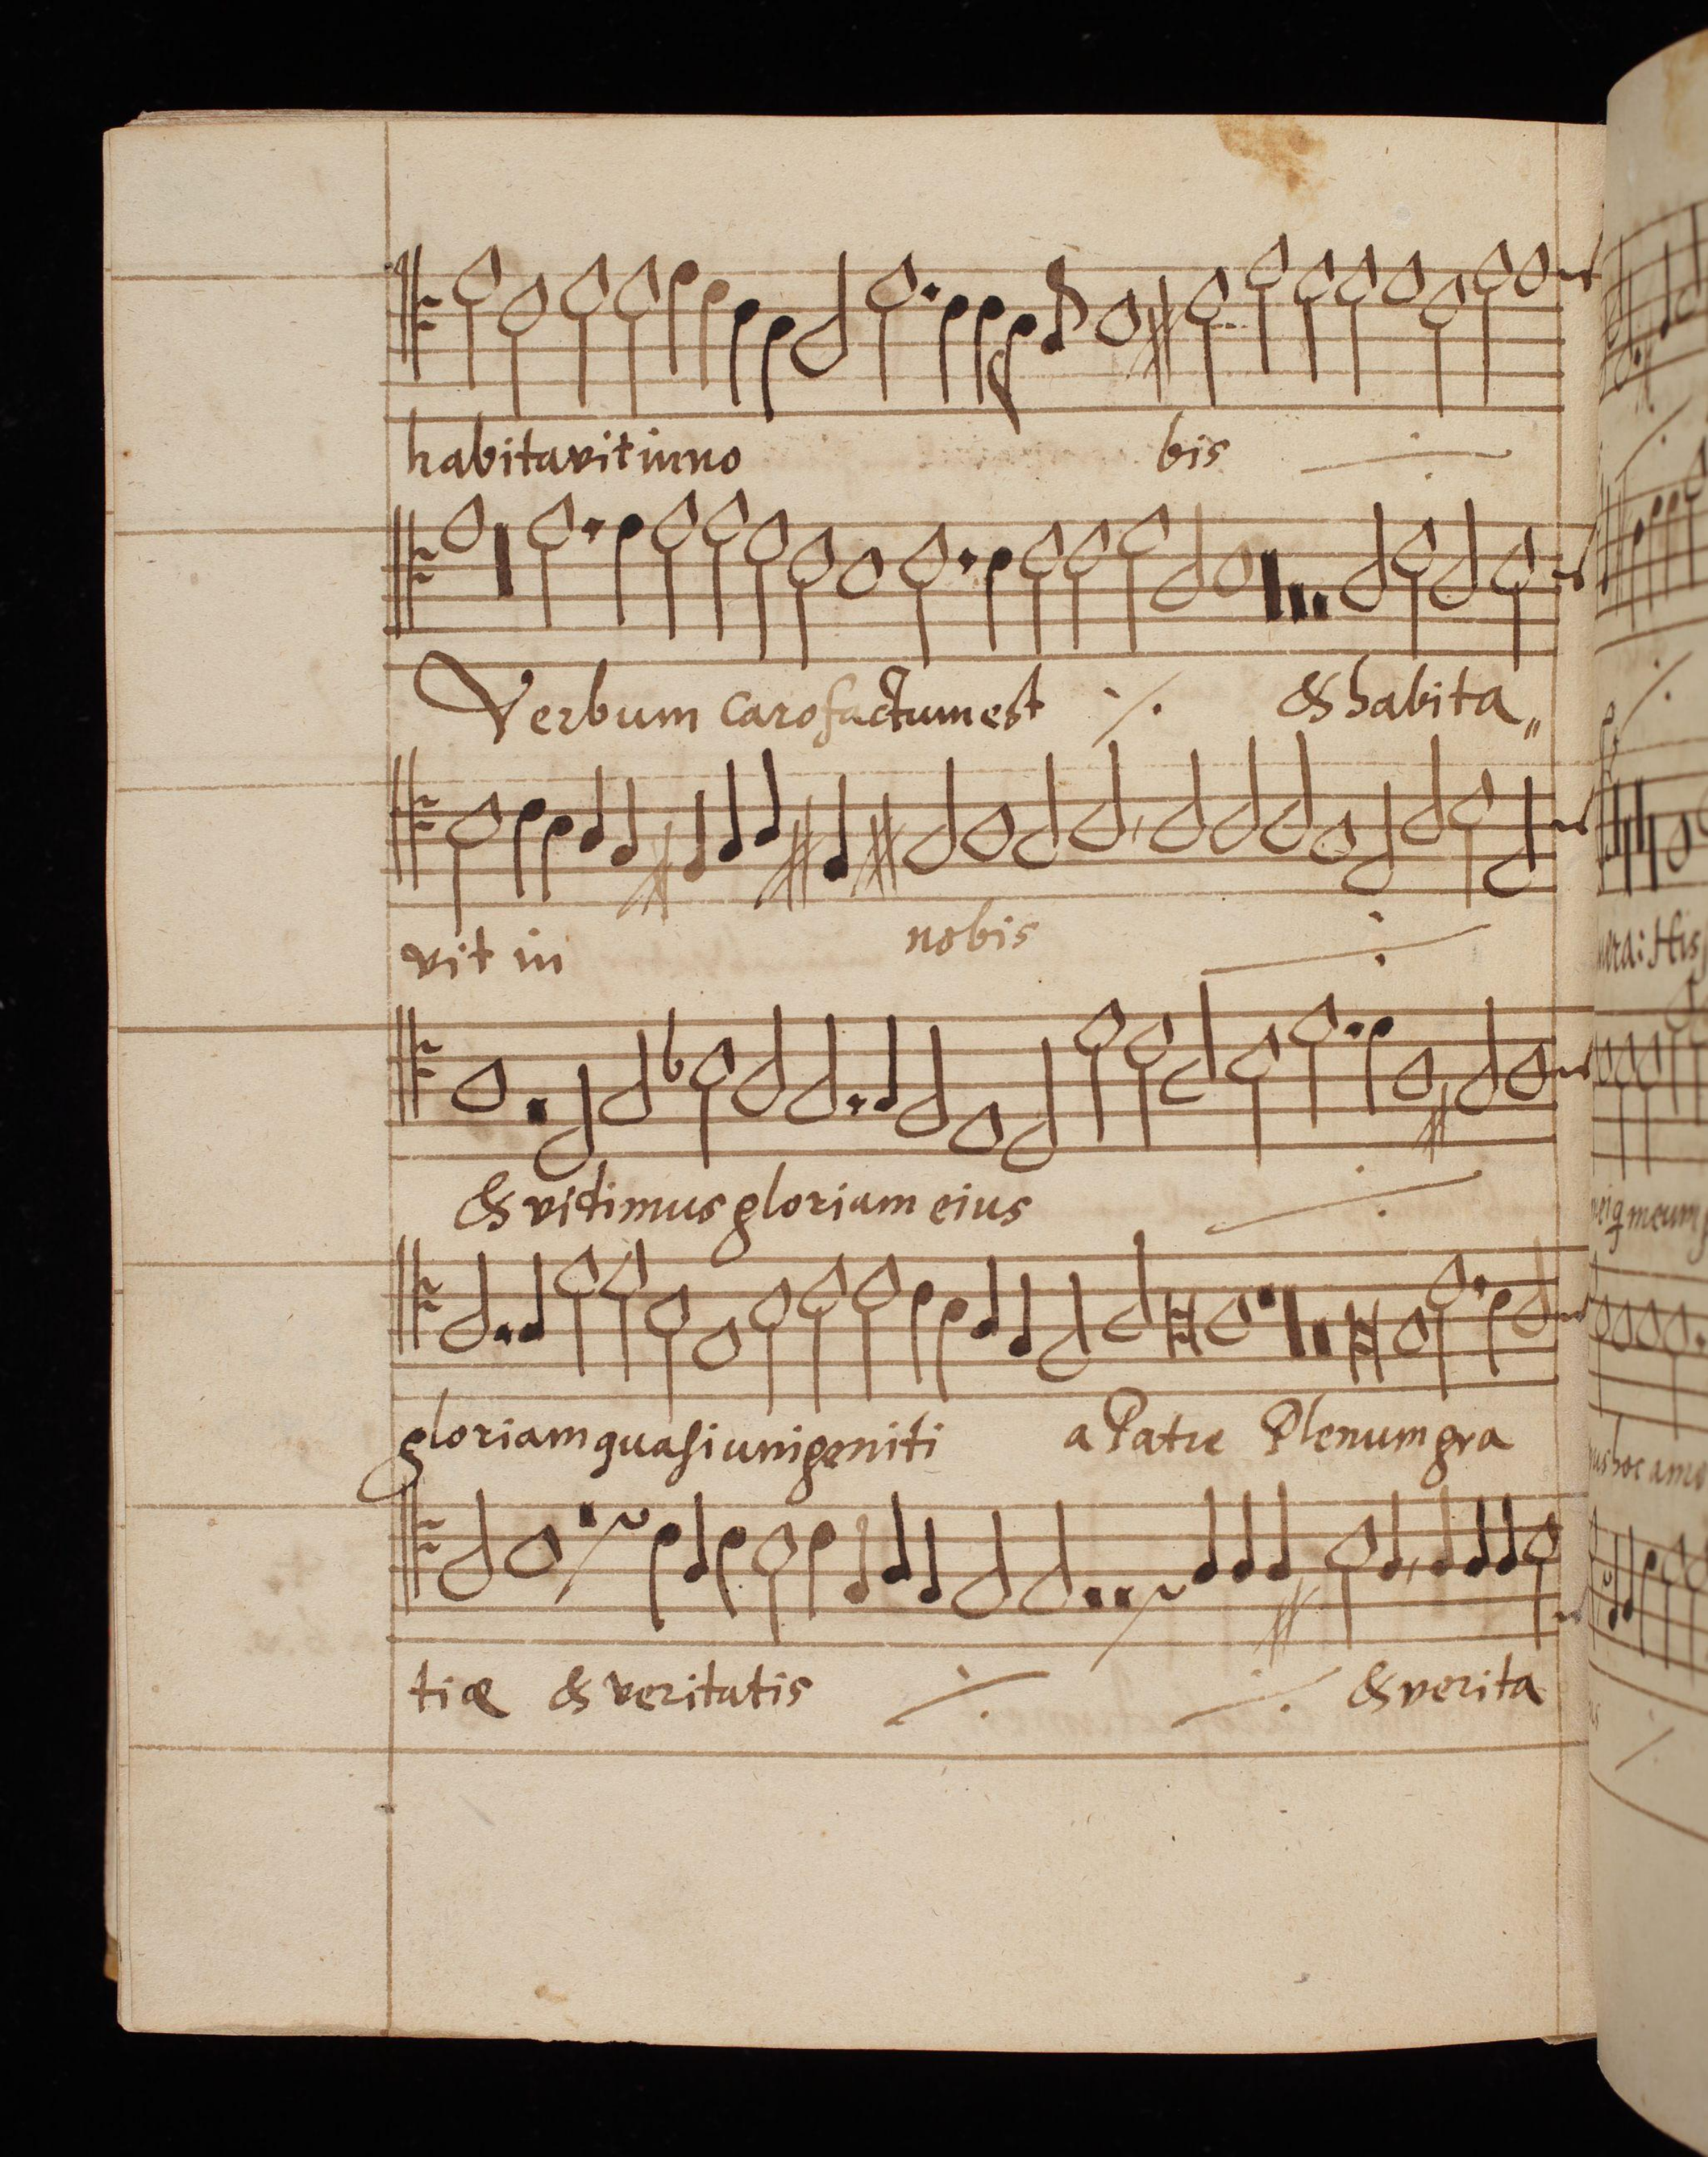 habitavit in no bis
Verbum caro factum est & habita„
vit in nobis
& vidimus gloriam eius
gloriam quasi unigeniti a Patre Plenum gra
tiæ & veritatis & verita